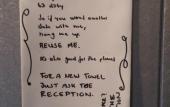 So if you want another
date with me,
hang me up.
REUSE ME.
It's also good for the planet
FOR A NEW TOWEL
JUST ASK THE
RECEPTION.